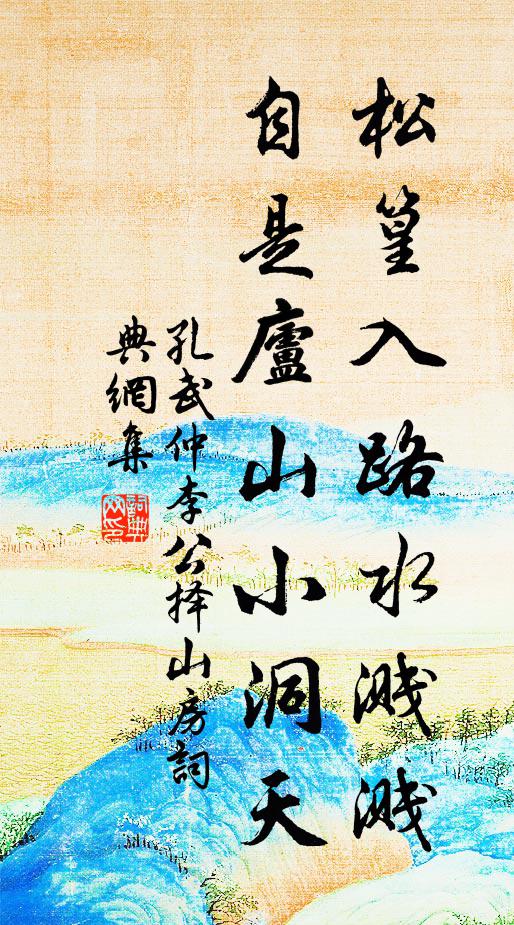 松篁入路水溅溅
自是廬山小洞天
孔武仲李公择山房詞
典網集
詞典網印